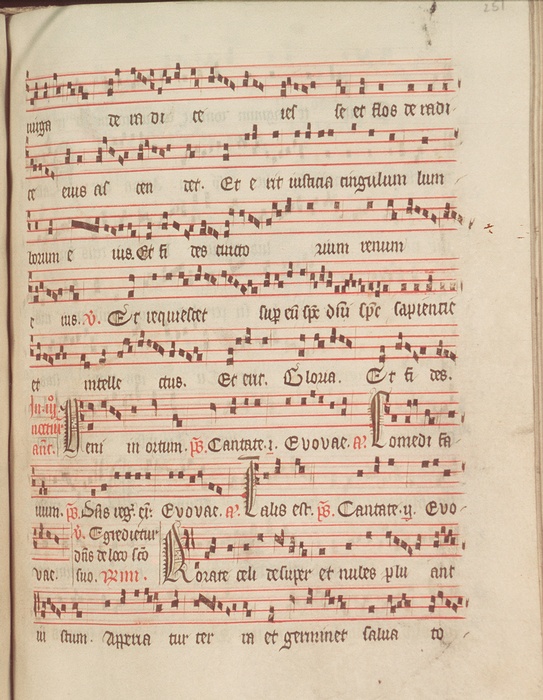 251
uirga de ra di ce ies se et flos de radi
ce eius as cen det. Et e rit iusticia cingulum lum
borum e ius. Et fi des cincto rium renum
e ius. V. Et requiescet sup eū spc dn̄i spc sapientie
et intelle ctus. Et erit. Gloria. Et fi des.
In iij noctur an̄e. Veni in ortum. ps. Cantate. i. Evovae. a. Comedi fa
uum. ps. Dn̄s reg. ex. Evovae. a. Talis est. ps. Cantate. ij. Evo
vae. V. Egredietur dn̄s de loco sc̄o suo. Rorate celi desuper et nubes plu ant
iu stum. Aperia tur ter ra et germinet salua to